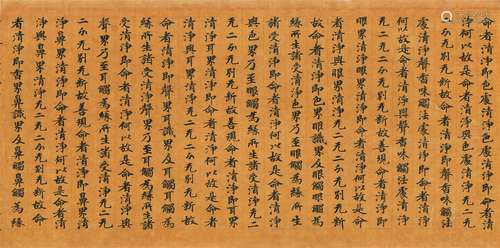 命者清淨即色處清淨色處清淨即命者清
淨何以故是命者清淨與色處清淨无二无
二分无別无斷故命者清淨即聲香味觸法
處清淨聲香味觸法處清淨即命者清淨
何以故是命者清淨與聲香味觸法處清淨
无二无二分无別无斷故善現命者清淨即
眼界清淨眼界清淨即命者清淨何以故是命
者清淨與眼界清淨无二无二分无別无斷
故命者清淨即色界眼識界及眼觸眼觸為
緣所生諸受清淨色界乃至眼觸為緣所
生諸受清淨即命者清淨何以故是命者清淨
與色界乃至眼觸為緣所生諸受清淨无二
无二分无別无斷故善現命者清淨即耳界
清淨耳界清淨即命者清淨何以故是
命者清淨與耳界清淨无二无二分无別无斷故
命者清淨即聲界耳識界及耳觸耳觸為
緣所生諸受清淨聲界乃至耳觸為緣所生諸
受清淨即命者清淨何以故是命者清淨與
聲界乃至耳觸為緣所生諸受清淨无二无
二分无別无斷故善現命者清淨即鼻界清
淨鼻界清淨即命者清淨何以故是命者清
淨與鼻界清淨无二无二分无別无斷故命
者清淨即香界鼻識界及鼻觸鼻觸為緣